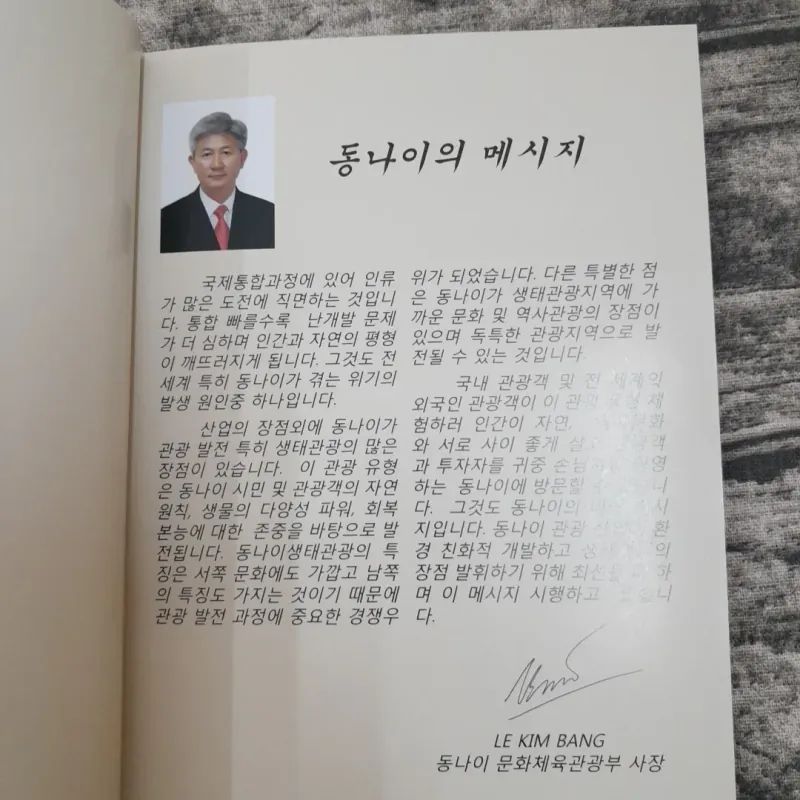 동나이의 메시지
국제통합과정에 있어 인류
가 많은 도전에 직면하는 것입니
다. 통합 빠를수록 난개발 문제
가 더 심하며 인간과 자연의 평형
이 깨뜨러지게 됩니다. 그것도 전
세계 특히 동나이가 겪는 위기의
발생 원인중 하나입니다.
산업의 장점외에 동나이가
관광 발전 특히 생태관광의 많은
장점이 있습니다. 이 관광 유형
은 동나이 시민 및 관광객의 자연
원칙, 생물의 다양성 파워, 회복
본능에 대한 존중을 바탕으로 발
전됩니다. 동나이생태관광의 특
징은 서쪽 문화에도 가깝고 남쪽
의 특징도 가지는 것이기 때문에
관광 발전 과정에 중요한 경쟁우
위가 되었습니다. 다른 특별한 점
은 동나이가 생태관광지역에 가
까운 문화 및 역사관광의 장점이
있으며 독특한 관광지역으로 발
전될 수 있는 것입니다.
국내 관광객 및 전 세계의
외국인 관광객이 이 관광 체
험하러 인간이 자연,
와 서로 사이 좋게
과 투자자를 귀중
하는 동나이에 방문할
다. 그것도 동나이의
지입니다. 동나이 관광
경 친화적 개발하고 의
장점 발휘하기 위해 하
며 이 메시지 시행하고
다.
LE KIM BANG
동나이 문화체육관광부 사장